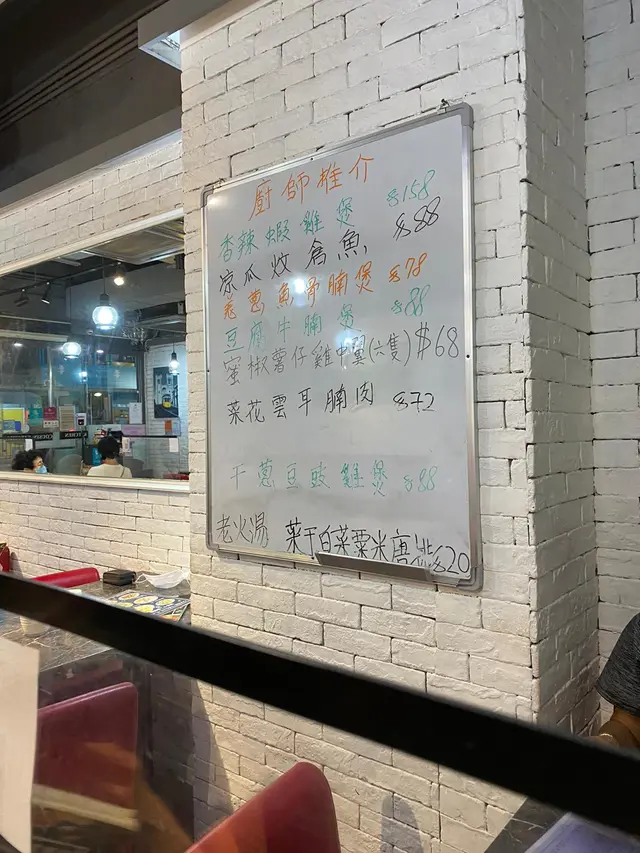 廚師推介
香辣蝦雞煲 $158
凉瓜炆倉魚 $88
羌葱魚浮腩煲 $78
豆腐牛腩煲 $88
蜜椒薯仔雞中翼(六隻) $68
菜花雲耳腩肉 $72
干蔥豆豉雞煲 $88
老火湯 菜干白菜粟米唐排 $20